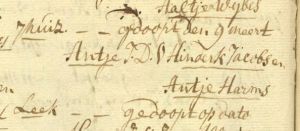 Aaltje Wybes
Thuis - - gedoopt den 9 meert
Antje, D. V. Hinderk Jacobsen
Antje Harms
Leek - - gedoopt op dato